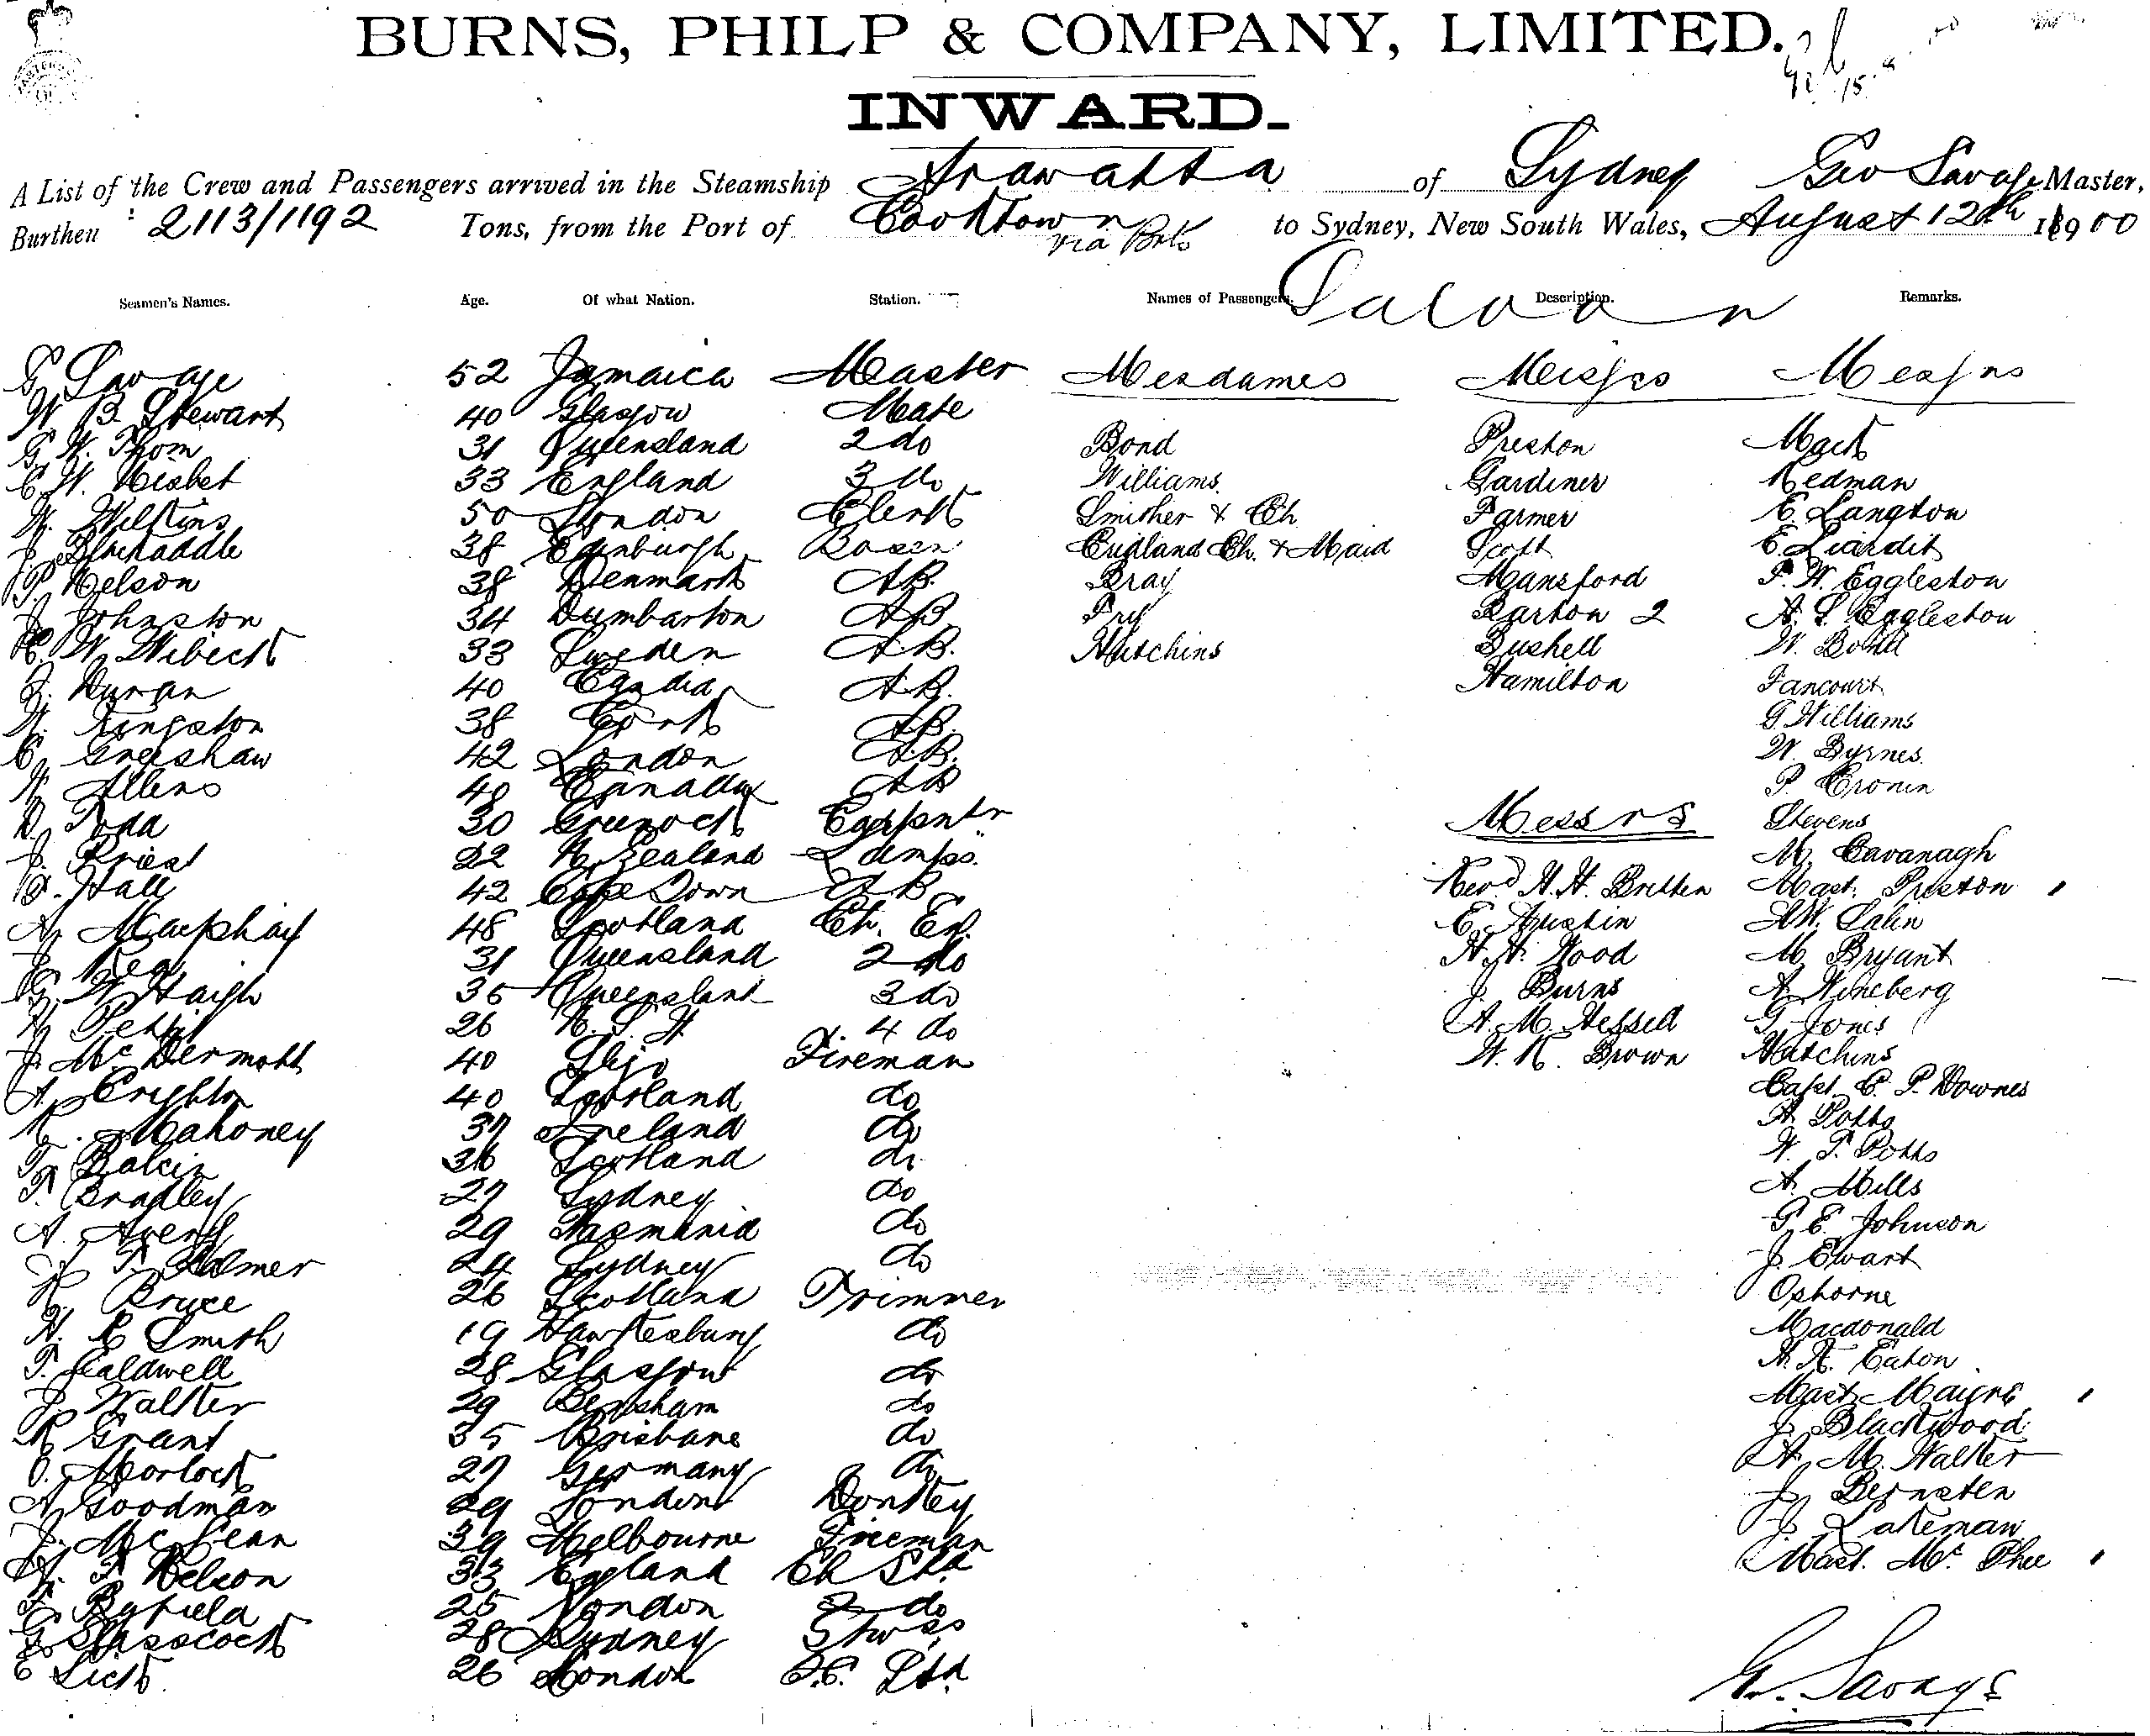 BURNS, PHILP & COMPANY, LIMITED.
INWARD.
A List of the Crew and Passengers arrived in the Steamship Arawatta of Sydney Geo Savage Master,
Burthen 2113/1192 Tons, from the Port of Cooktown via Ports to Sydney, New South Wales, August 12th 1900
Seamen's Names. Age. Of what Nation. Station. Names of Passengers. Description. Remarks.
Saloon
G Savage 52 Jamaica Master Mesdames Misses Messrs
W B. Stewart 40 Glasgow Mate
G. W. Thom 31 Queensland 2 do Bond Preston Mack
C. W. Nisbet 33 England 3 do Williams Gardiner Redman
W. Wilkins 50 London Clerk Smither & Ch. Farmer E. Langton
J. Blackaddle 38 Edinburgh Bosen Cudland Ch. & Maid Scott E. Liardit
P. Nelson 38 Denmark AB. Bray Mansford F. W. Eggleston
J Johnston 34 Dumbarton AB Fry Barton 2 A. S. Eggleston
C. W. Wibeck 33 Sweden AB. Hutchins Bushell W. Bond
J. Duran 40 Candia AB. Hamilton Fancourt
W. Kingston 38 Cork AB. G. Williams
C. Greashaw 42 London AB. W. Byrnes.
W Allens 40 Canada AB P. Cronin
D. Todd 30 Greenock Carpentr Messrs Stevens
J. Priest 22 N. Zealand Lamps. M. Cavanagh
T. Hall 42 Cape Town AB Revd H. H. Britten Mast. Preston
A. Macphail 48 Scotland Ch. En. E. Austin
J Reay 31 Queensland 2 do H. H. Wood M. Bryant
G. W Haigh 35 Queensland 3 do J. Burns A. Wineberg
26 N. S. W. 4 do A. M. Hessell G. Jones
J. McDermott 40 Sligo Fireman W. K. Brown Hutchins
A. Crighton 40 Scotland do Capt. C. P. Downes
R. Mahoney 37 Ireland do A. Potts
T. Balcin 36 Scotland do W. T. Potts
T. Bradley 27 Sydney do A. Mills
A. Avery 29 Tasmania do G. E. Johnson
T. Palmer 24 Sydney do J. Ewart
R. Bruce 26 Scotland Trimmer Osborne
H. C Smith 19 Hawkesbury do Macdonald
T. Caldwell 28 Glasgow do H. A. Eaton
J. Walker 29 Bensham do Mast. Maigre
R Grant 35 Brisbane do J. Blackwood
O. Morlock 27 Germany do A. M. Walker
A. Goodman 29 London Donkey J. Bernsten
J. McLean 39 Melbourne Fireman J. Lakeman
H. T. Nelson 33 England Ch Std Mast. McPhee
F. Byfield 25 London 2 do
G. Glasscock 28 Sydney Stwss
C Lick 26 London F.C. Std.
G. Savage